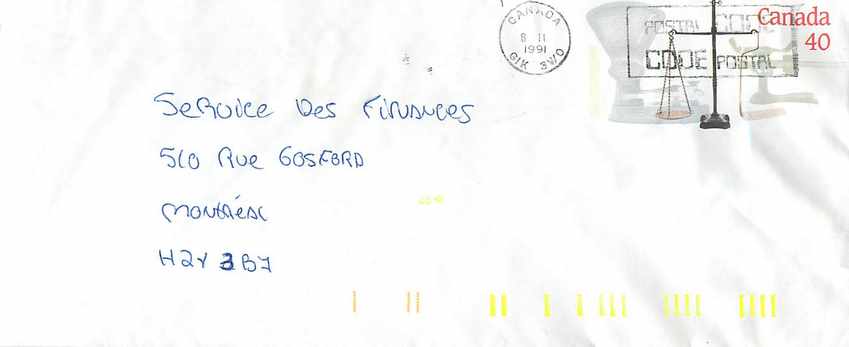 CANADA
8 II
1991
G1K 3W0
POSTAL CODE
CODE POSTAL
Canada
40
Service Des Finances
510 Rue GOSFORD
Montréal
H2Y 3B7